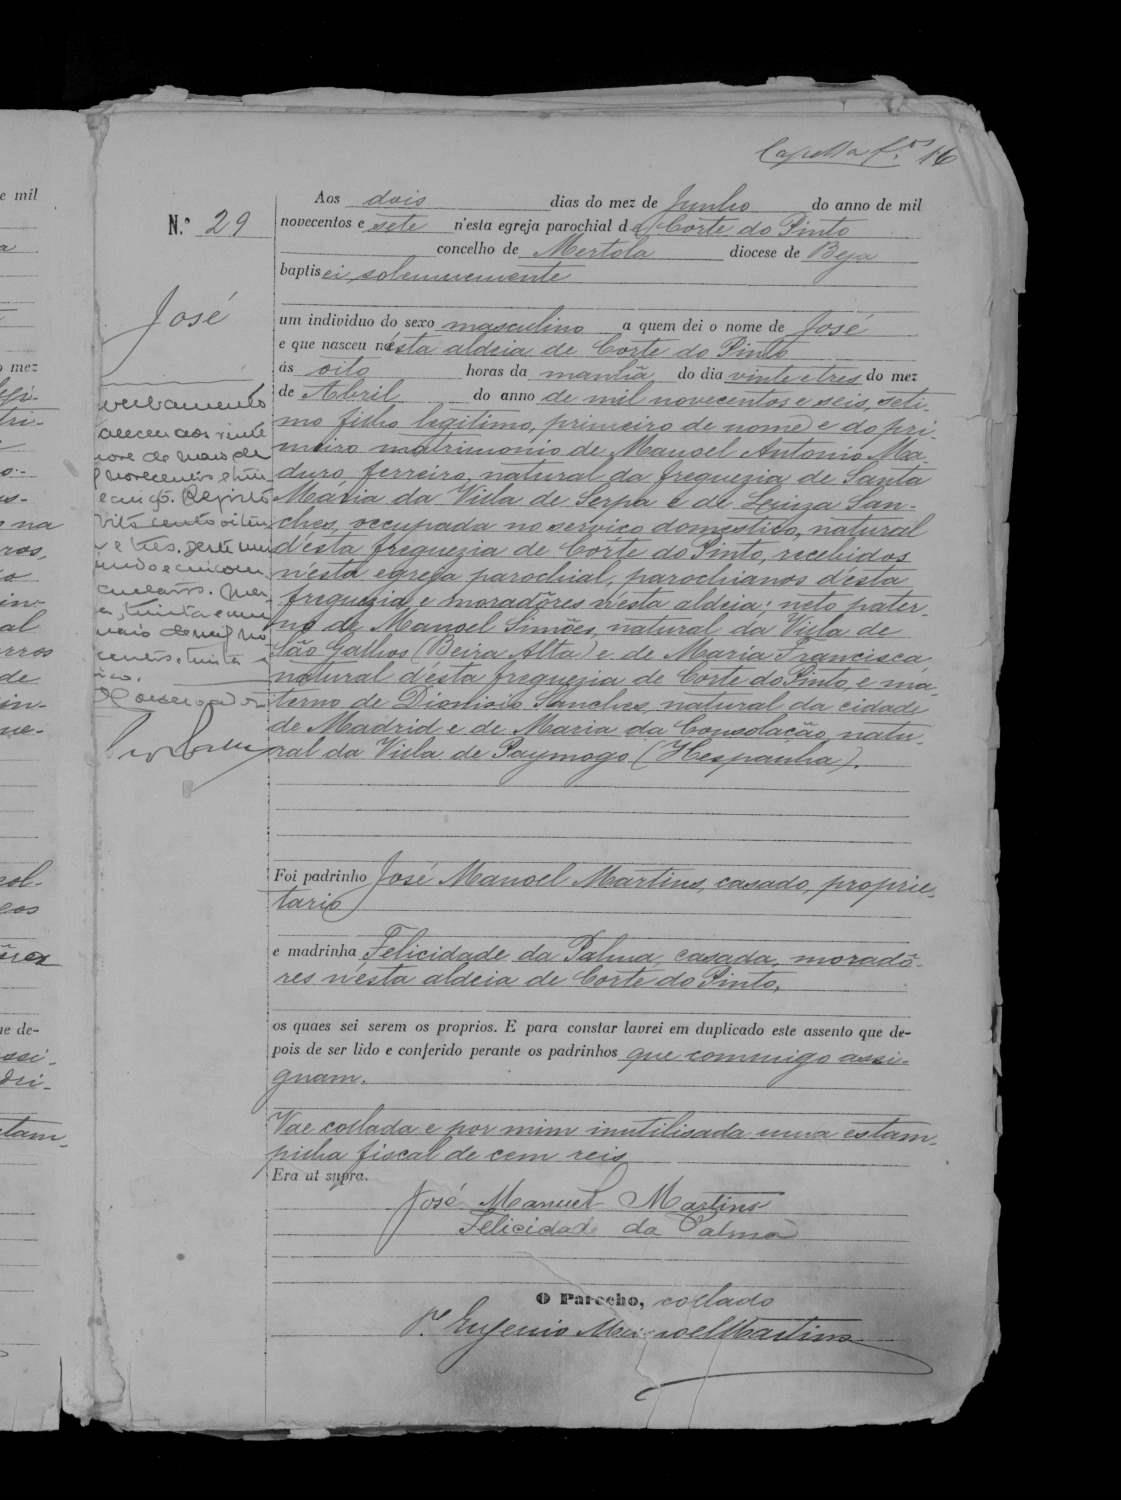 Capella f.os 16
N.º 29
José
Aos dois dias do mez de Junho do anno de mil
novecentos e sete n'esta egreja parochial d a Côrte do Pinto
concelho de Mertola diocese de Beja
baptisei solemnemente
um individuo do sexo masculino a quem dei o nome de José
e que nasceu n'ésta aldeia de Corte do Pinto
ás oito horas da manhã do dia vinte e tres do mez
de Abril do anno de mil novecentos e seis, seti-
mo filho legitimo, primeiro de nome e do pri-
meiro matrimonio de Manoel Antonio Ma-
duro, ferreiro, natural da freguezia de Santa
Mária da Villa de Serpa e de Luiza San-
ches, occupada no serviço domestico, natural
d'ésta freguezia de Côrte do Pinto, recebidos
n'ésta egreja parochial, parochianos d'ésta
freguezia e moradôres n'ésta aldeia; neto pater-
no de Manoel Simões, natural da Villa de
São Galhos (Beira Alta) e de Maria Francisca,
natural d'ésta freguezia de Corte do Pinto, e ma-
terno de Dionisio Sanches, natural da cidade
de Madrid e de Maria da Consolação, natu-
ral da Villa de Paymogo (Hespanha).
verbamento
aos vinte
de maio de
novecentos e trin
cinco. Registo
cento oiten
e tres.
trinta e cinco
maio de mil no
centos e trinta e
O conservador
Foi padrinho José Manoel Martins, casado, proprie-
tario
e madrinha Felicidade da Palma, casada, moradô-
res n'ésta aldeia de Corte do Pinto,
os quaes sei serem os proprios. E para constar lavrei em duplicado este assento que de-
pois de ser lido e conferido perante os padrinhos que commigo assi-
gnam.
Vae collada e por mim inutilisada uma estam-
pilha fiscal de cem reis
Era ut supra.
José Manuel Martins
Felicidade da Palma
O Parocho, collado
P.e Eugenio Manoel Martins